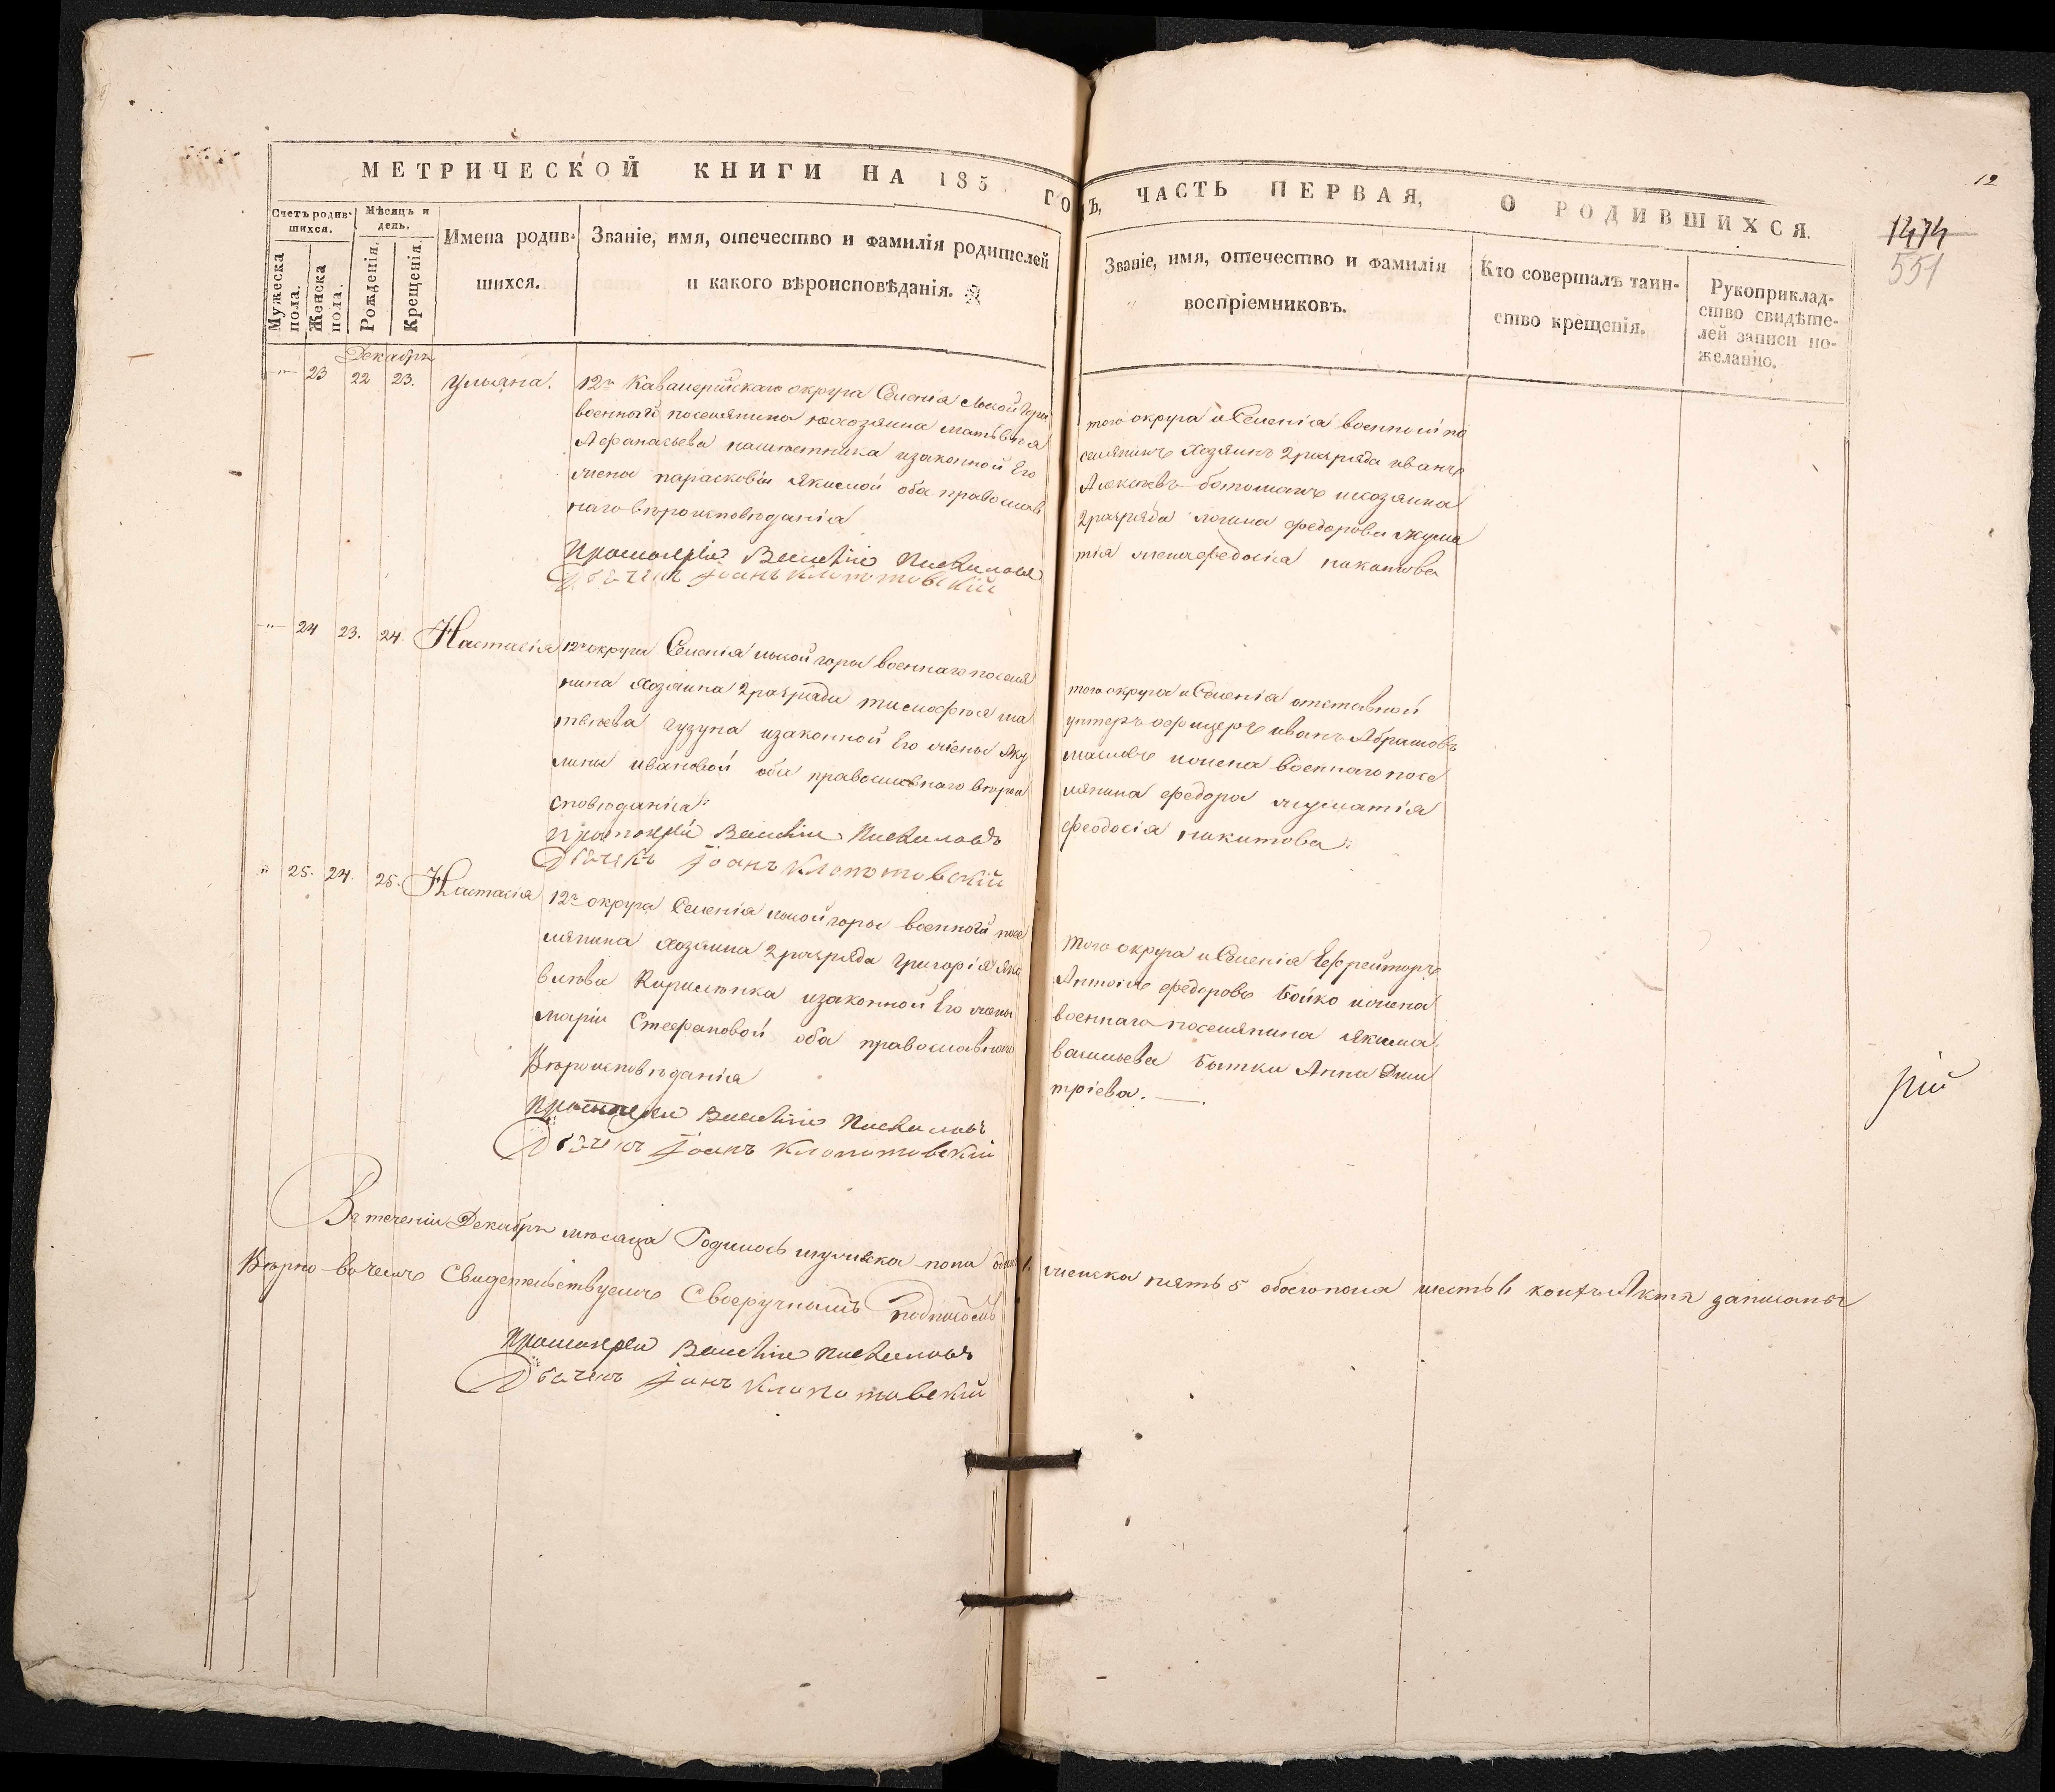 МЕТРИЧЕСКОЙ КНИГИ НА 185 ГОДЪ, ЧАСТЬ ПЕРВАЯ, О РОДИВШИХСЯ.
12
1474
551
Счетъ родившихся.
Мужеска пола.
Женска пола.
Мѣсяцъ и день.
Рожденія.
Крещенія.
Имена родившихся.
Званіе, имя, отечество и фамилія родителей
и какого вѣроисповѣданія.
Званіе, имя, отечество и фамилія
воспріемниковъ.
Кто совершалъ таинство крещенія.
Рукоприкладство свидѣтелей записи по желанію.
Декабрь
23 22 23. Ульяна.
12го Кавалерійскаго округа Селенія Лысой Горы
военнаго поселянина нехозяина Матвѣя
Афанасьева изаконной Его
жены Парасковіи Якимой оба православ
наго вѣроисповѣданія
Протоіерей Василій
Дьячекъ Іоанъ Клопотовскій
того округа и Селенія военной по
селянинъ Хозяинъ 2 разряда иванъ
Алексѣевъ ихозяина
2 разряда логина федорова Жума
тія жена федосіа никитова
24 23. 24. Настасіа
12го округа Селенія лысой горы военнаго поселя
нина Хозяина 2 разряда тимофѣя ма
твѣева гузуна изаконной Его жены Аку
лины ивановой оба православнаго вѣрои
сповѣданія
Протоіерей Василій
Дьячекъ Іоанъ Клопотовскій
того округа и Селенія отставной
унтеръ офицеръ иванъ Абрамовъ
ижена военнаго посе
лянина федора жуматія
феодосія никитова
25. 24. 25. Настасіа
12го округа Селенія лысой горы военнаго посе
лянина Хозяина 2 разряда григорія Яко
влева Кирилѣнка изаконной Его жены
маріи Стефановой оба православнаго
Вѣроисповѣданія
Протоіерей Василій
Дьячекъ Іоанъ Клопотовскій
того округа и Селенія Ефрейторъ
Антонъ федоровъ Бойко ижена
военнаго поселянина якима
васильева Анна Дми
тріева.
рій
Въ теченіи Декабрь мѣсяца Родилось мужеска пола одинъ 1. женска пять 5 обоего пола шесть 6 коихъ Актъ записаны
Вѣрно въ чемъ Свидетельствуемъ Своеручнымъ подписомъ
Протоіерей Василій
Дьячекъ Іоанъ Клопотовскій